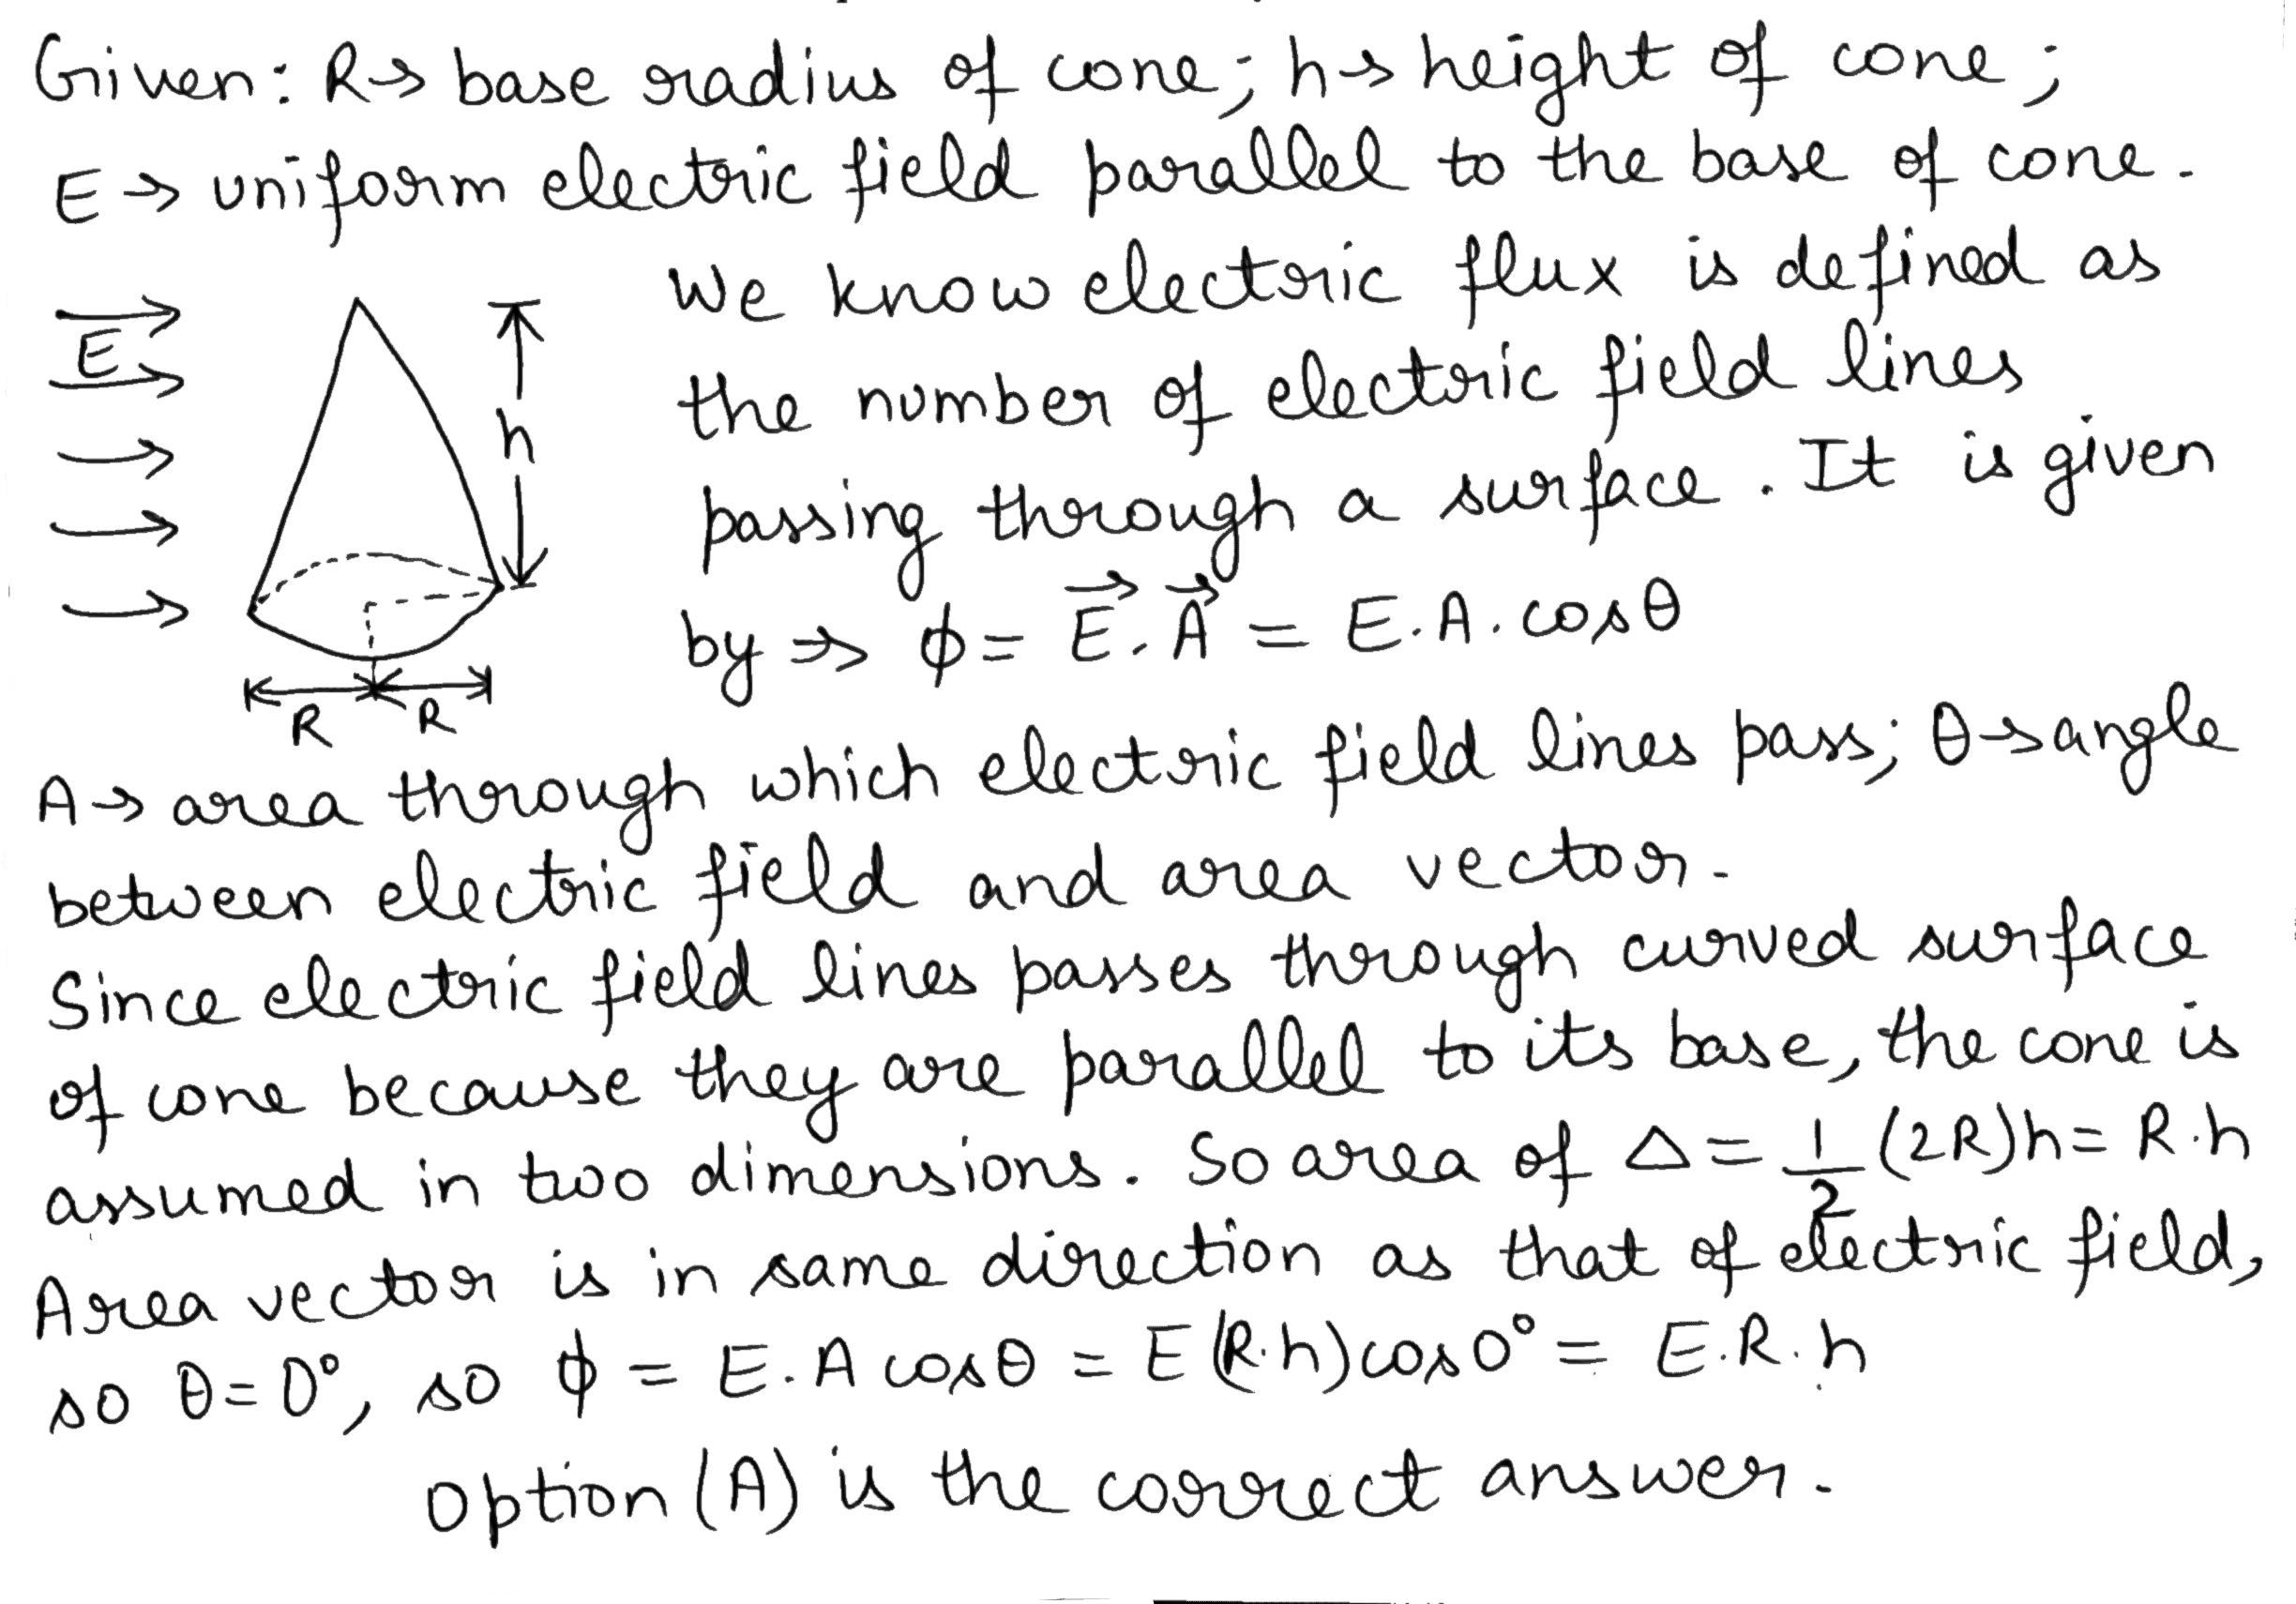 Given: R→ base radius of cone; h→ height of cone;
E → uniform electric field parallel to the base of cone.
We know electric flux is defined as
the number of electric field lines
passing through a surface. It is given
by ⇒ ϕ = E⃗.A⃗ = E.A.cosθ
E
h
R R
A→ area through which electric field lines pass; θ→angle
between electric field and area vector.
Since electric field lines passes through curved surface
of cone because they are parallel to its base, the cone is
assumed in two dimensions. So area of △ = 1/2 (2R)h = R.h
Area vector is in same direction as that of electric field,
so θ=0°, so ϕ = E.A cosθ = E(R.h)cos0° = E.R.h
Option (A) is the correct answer.